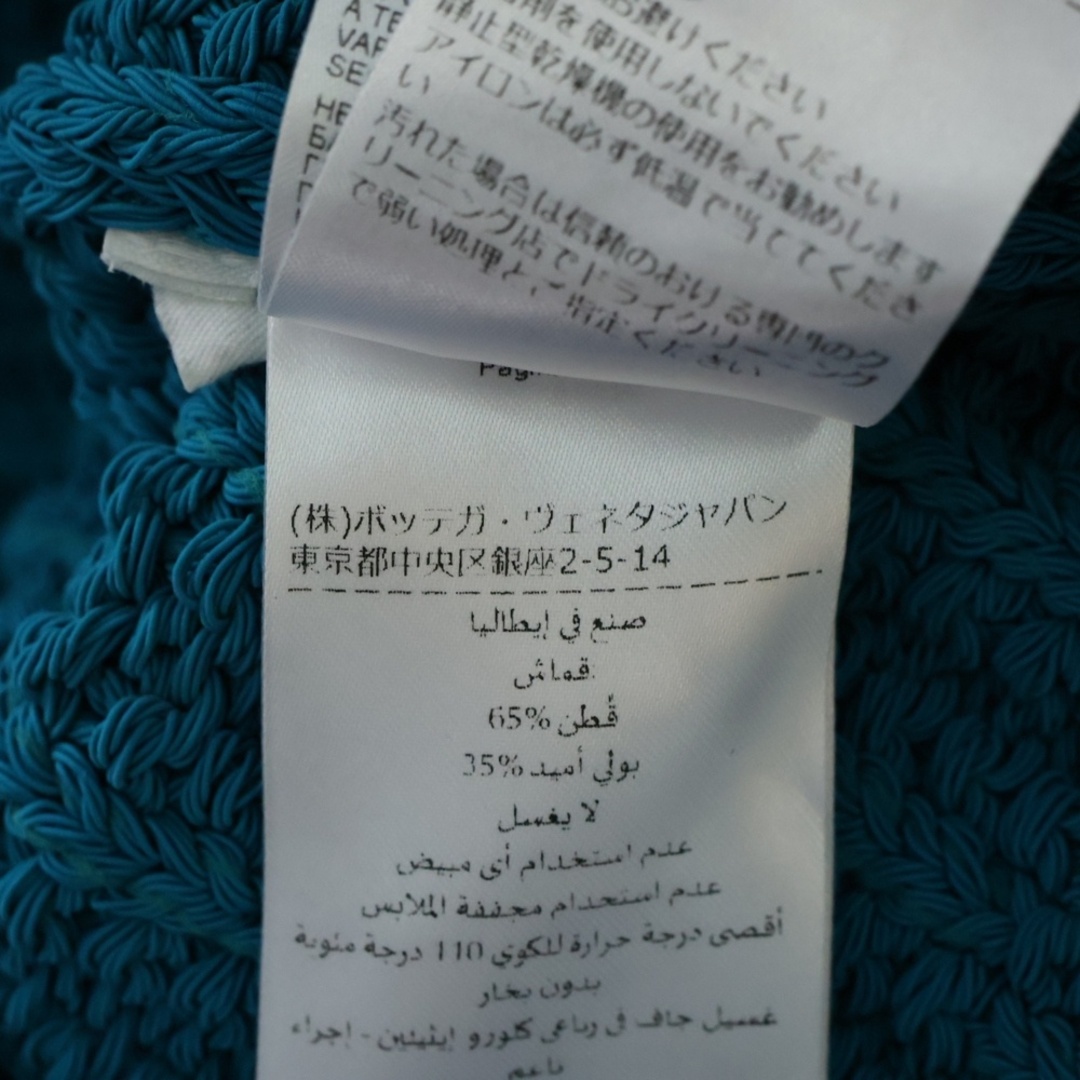 A TE
VAP
SE
HE
お避けください
剤を使用しないでください
静止型乾燥機の使用をお勧めします
アイロンは必ず低温で当ててくださ
い
汚れた場合は信頼のおける専門のク
リーニング店でドライクリーニング
で弱い処理と、ご指定ください
(株)ボッテガ・ヴェネタジャパン
東京都中央区銀座2-5-14
صنع في إيطاليا
قماش:
قُطن %65
بولي أميد %35
لا يغسل
عدم استخدام أي مبيض
عدم استخدام مجففة الملابس
أقصى درجة حرارة للكوي 110 درجة مئوية
بدون بخار
غسيل جاف في رباعي كلورو إيثيلين - إجراء
ناعم